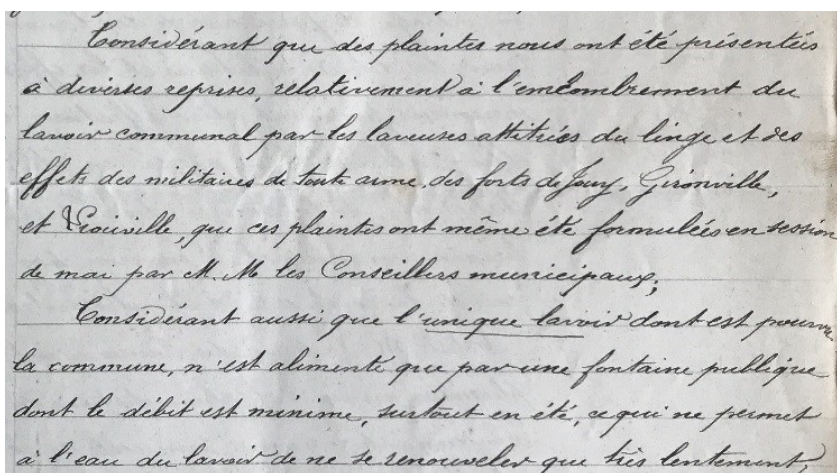 Considérant que des plaintes nous ont été présentées
à diverses reprises, relativement à l'emcombrement du
lavoir communal par les laveuses attitrées du linge et des
effets des militaires de toute arme, des forts de Jouy, Gironville,
et Liouville, que ces plaintes ont même été formulées en session
de mai par M. M les Conseillers municipaux;
Considérant aussi que l'unique lavoir dont est pourvu
la commune, n'est alimenté que par une fontaine publique
dont le débit est minime, surtout en été, ce qui ne permet
à l'eau du lavoir de ne se renouveler que très lentement,